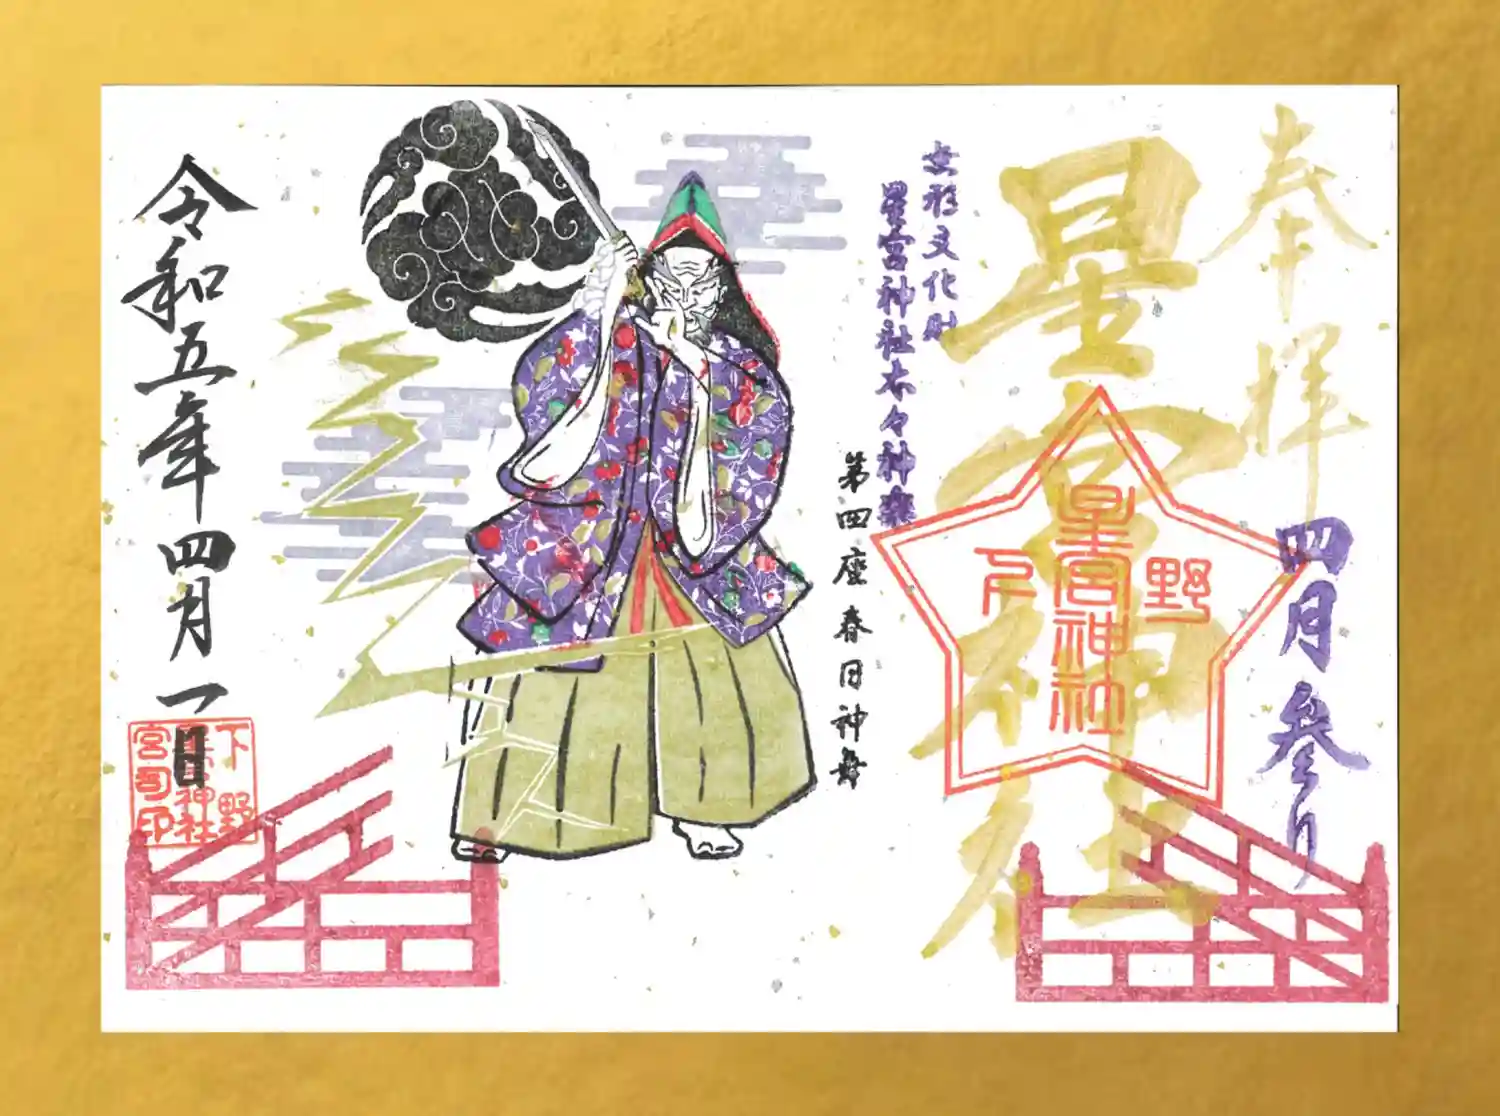 奉拝
星宮神社
下野
星宮神社
四月参り
無形文化財
星宮神社太々神楽
第四座春日神舞
令和五年四月一日
下野
星宮神社
宮司印